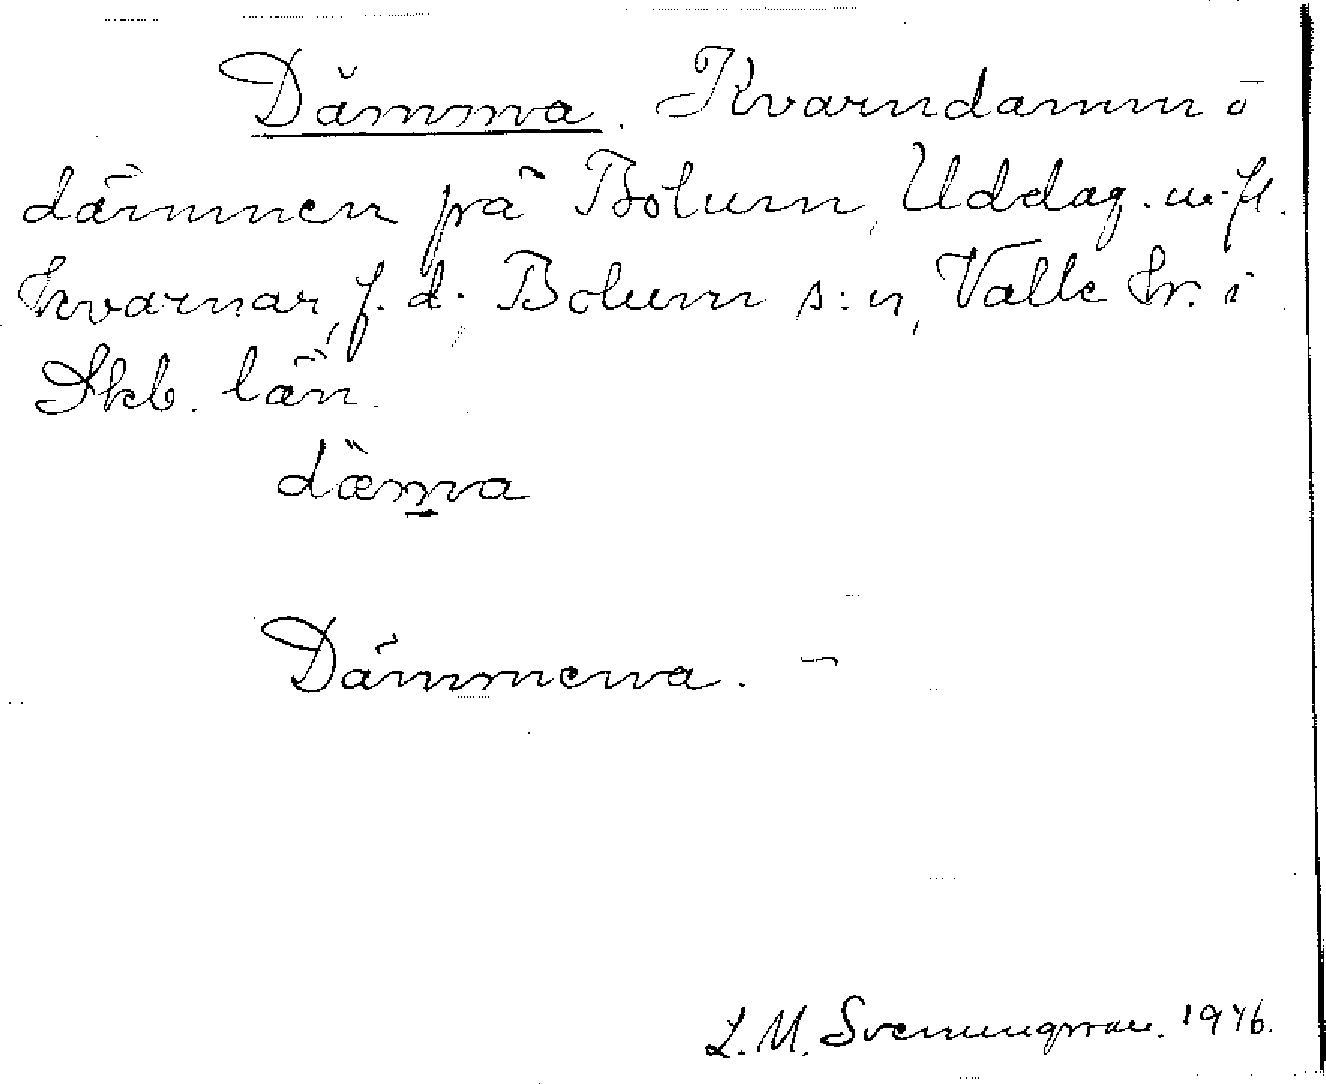 Dämma. Kvarndamm i
dämmen på Bolum, Uddag. m. fl.
kvarnar, f. d. Bolum s:n, Valle hr. i
Skb. län.
däma
Dämmena. –
L. M. Svenungsson. 1946.